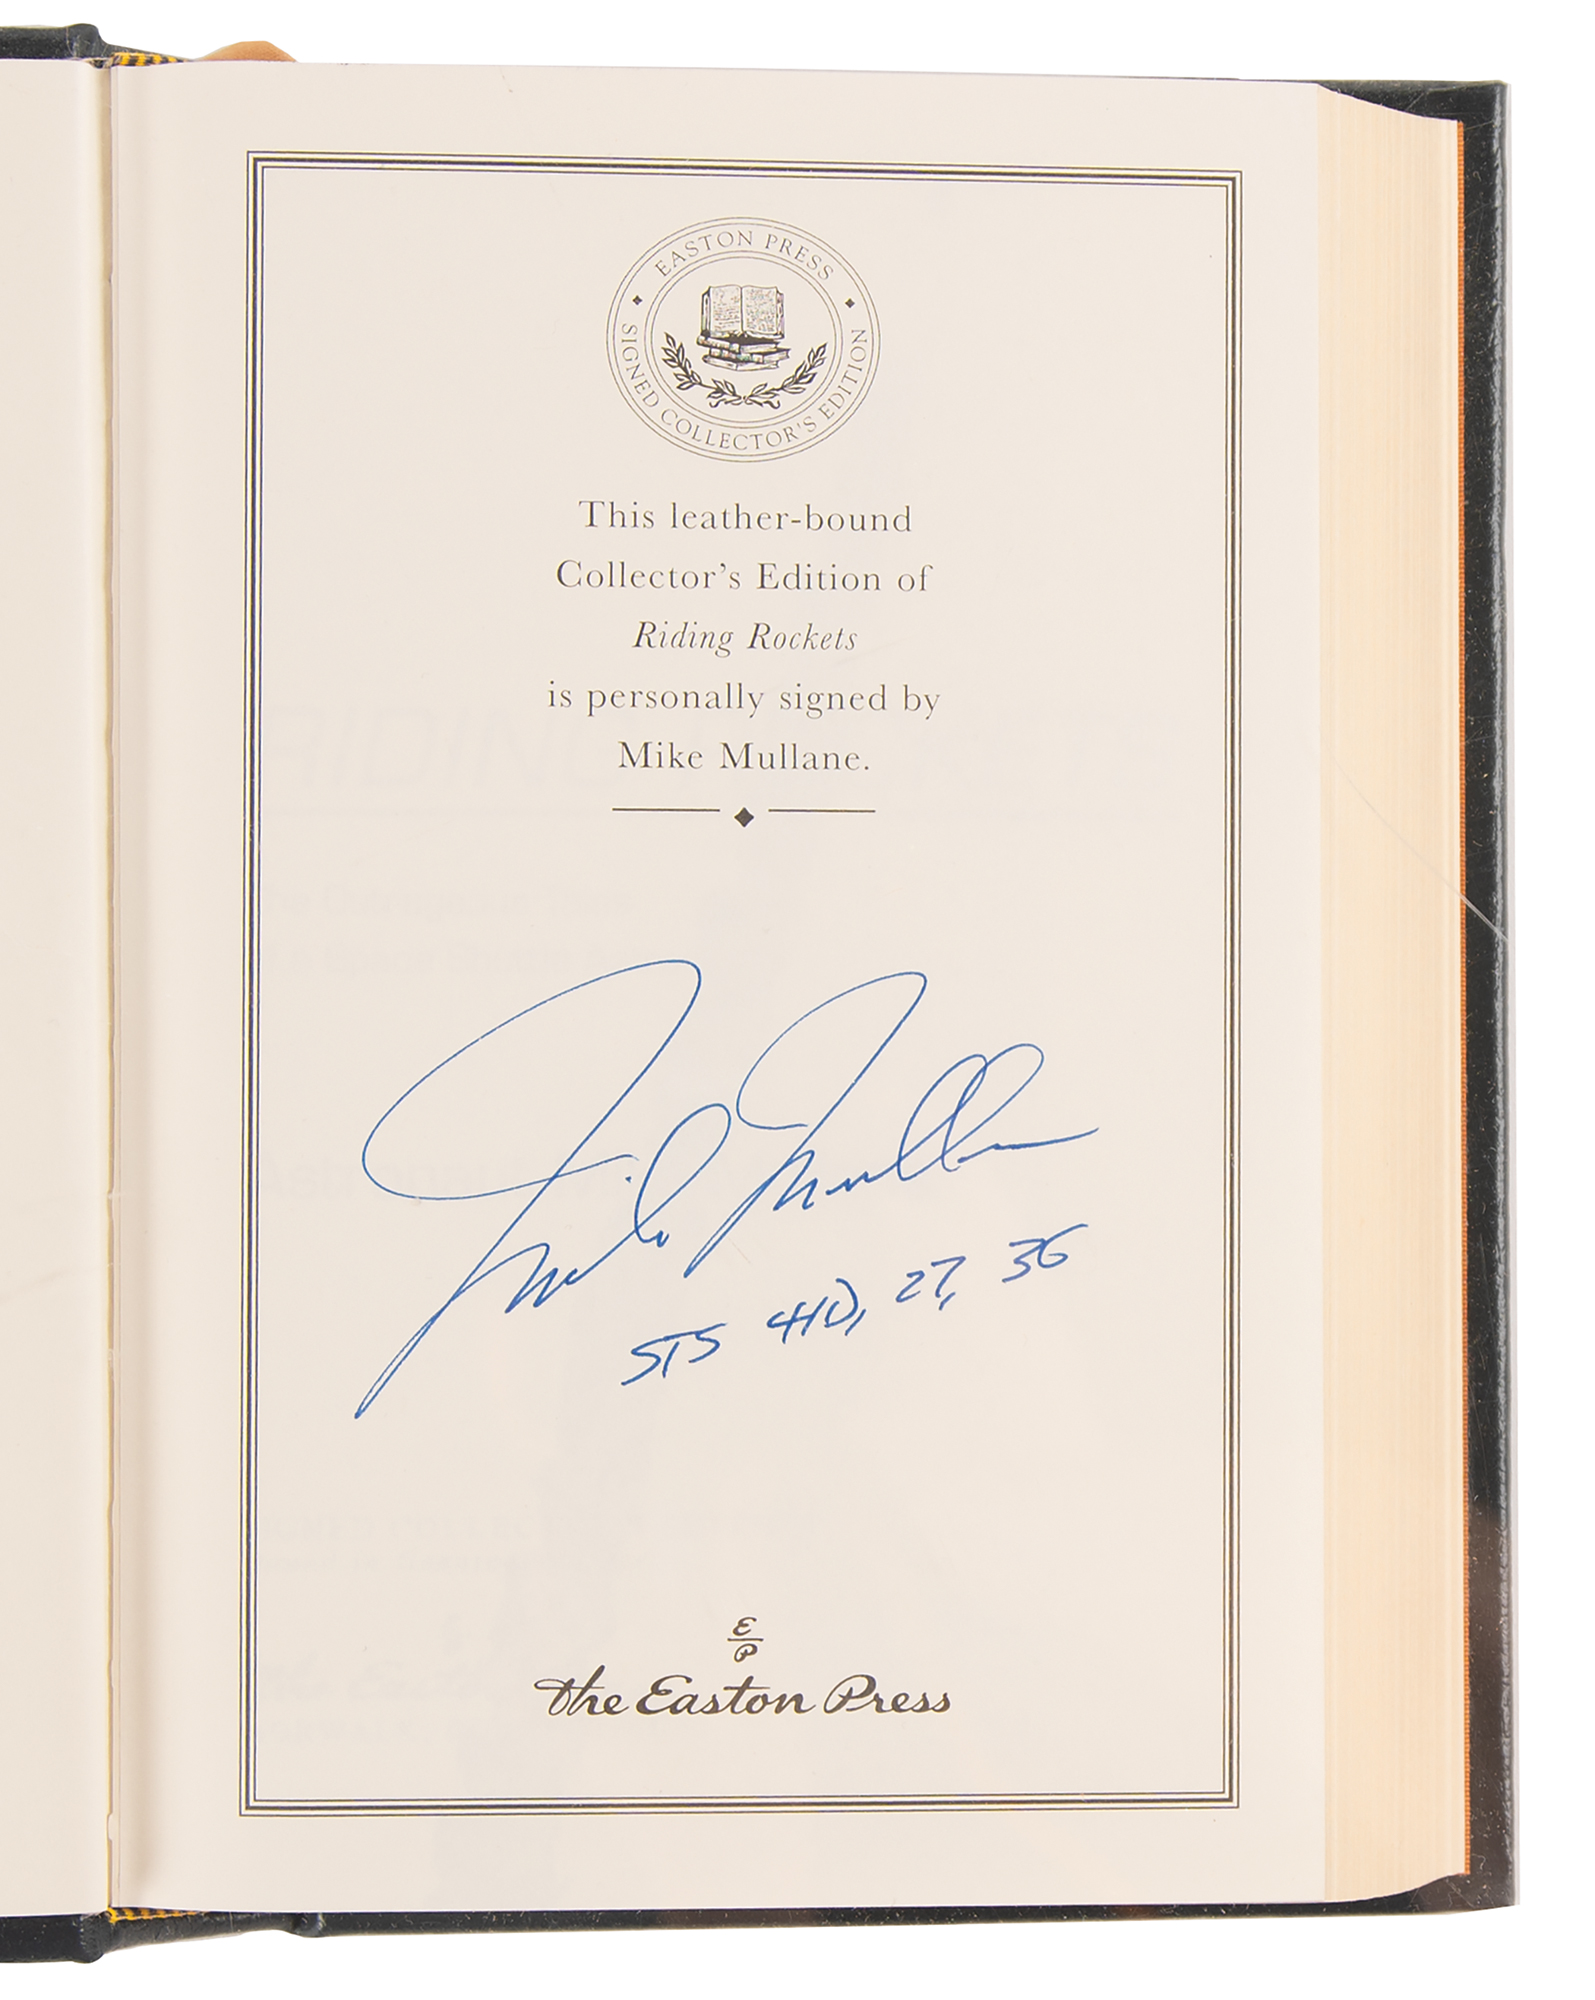 EASTON PRESS
SIGNED COLLECTOR'S EDITION
This leather-bound
Collector's Edition of
Riding Rockets
is personally signed by
Mike Mullane.
Mike Mullane
STS 41D, 27, 36
E
P
The Easton Press